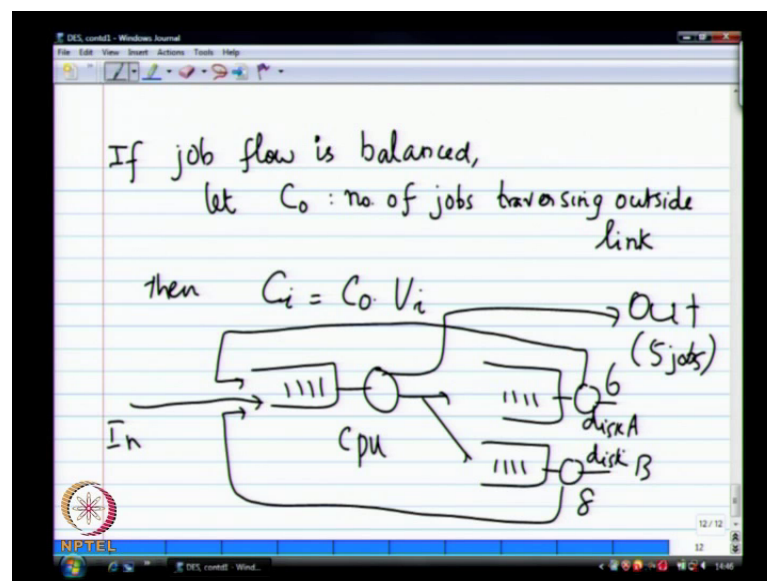 DES, contd1 - Windows Journal
File Edit View Insert Actions Tools Help
If job flow is balanced,
let C₀ : no. of jobs traversing outside
link
then Cᵢ = C₀. Vᵢ
Out
(5 jobs)
6
disk A
In
CPU
disk B
8
12 / 12
12
NPTEL
DES, contd1 - Wind...
14:46